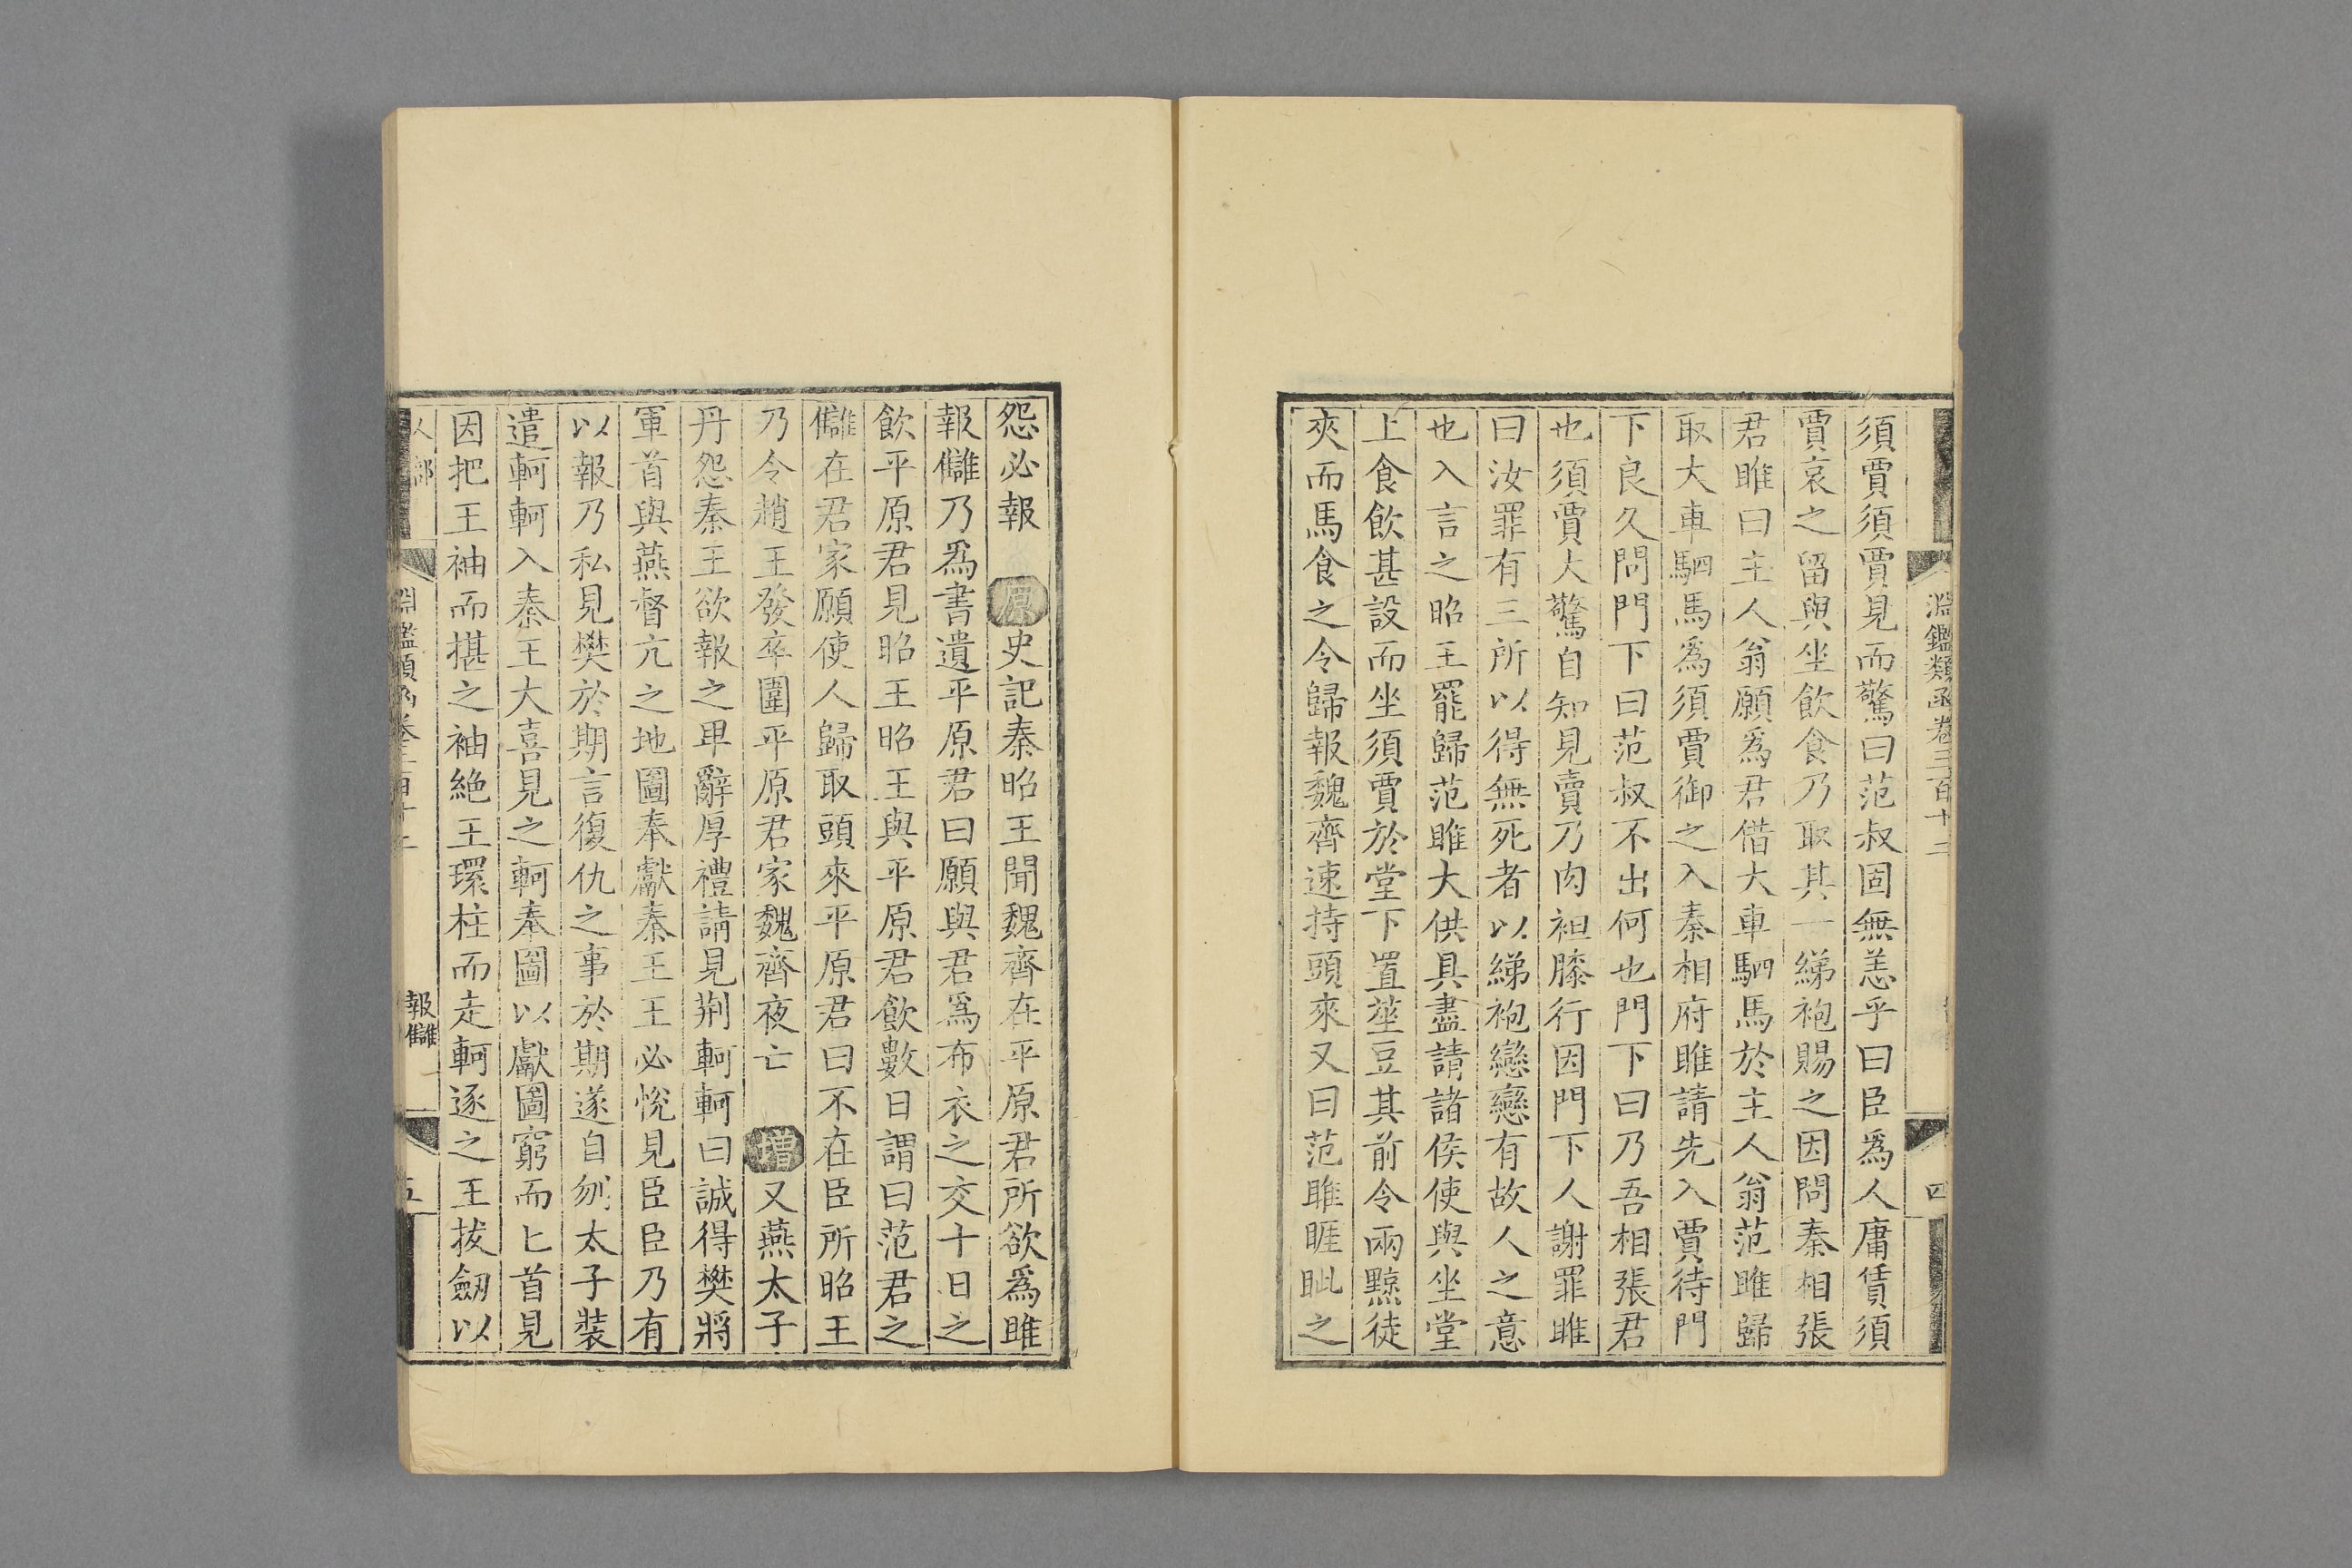 淵鑑類函卷三百十二
四
須賈須賈見而驚曰范叔固無恙乎曰臣爲人庸賃須
賈哀之留與坐飲食乃取其一綈袍賜之因問秦相張
君雎曰主人翁願爲君借大車駟馬於主人翁范雎歸
取大車駟馬爲須賈御之入秦相府雎請先入賈待門
下良久問門下曰范叔不出何也門下曰乃吾相張君
也須賈大驚自知見賣乃肉袒膝行因門下人謝罪雎
曰汝罪有三所以得無死者以綈袍戀戀有故人之意
也入言之昭王罷歸范雎大供具盡請諸侯使與坐堂
上食飲甚設而坐須賈於堂下置莝豆其前令兩黥徒
夾而馬食之令歸報魏齊速持頭來又曰范雎睚眦之
怨必報 原史記秦昭王聞魏齊在平原君所欲爲雎
報讎乃爲書遺平原君曰願與君爲布衣之交十日之
飲平原君見昭王昭王與平原君飲數日謂曰范君之
讎在君家願使人歸取頭來平原君曰不在臣所昭王
乃令趙王發卒圍平原君家魏齊夜亡 增又燕太子
丹怨秦王欲報之卑辭厚禮請見荆軻軻曰誠得樊將
軍首與燕督亢之地圖奉獻秦王王必悅見臣臣乃有
以報乃私見樊於期言復仇之事於期遂自刎太子裝
遣軻軻入秦王大喜見之軻奉圖以獻圖窮而匕首見
因把王袖而揕之袖絶王環柱而走軻逐之王拔劒以
人部
淵鑑類函卷三百十二
報讎
五